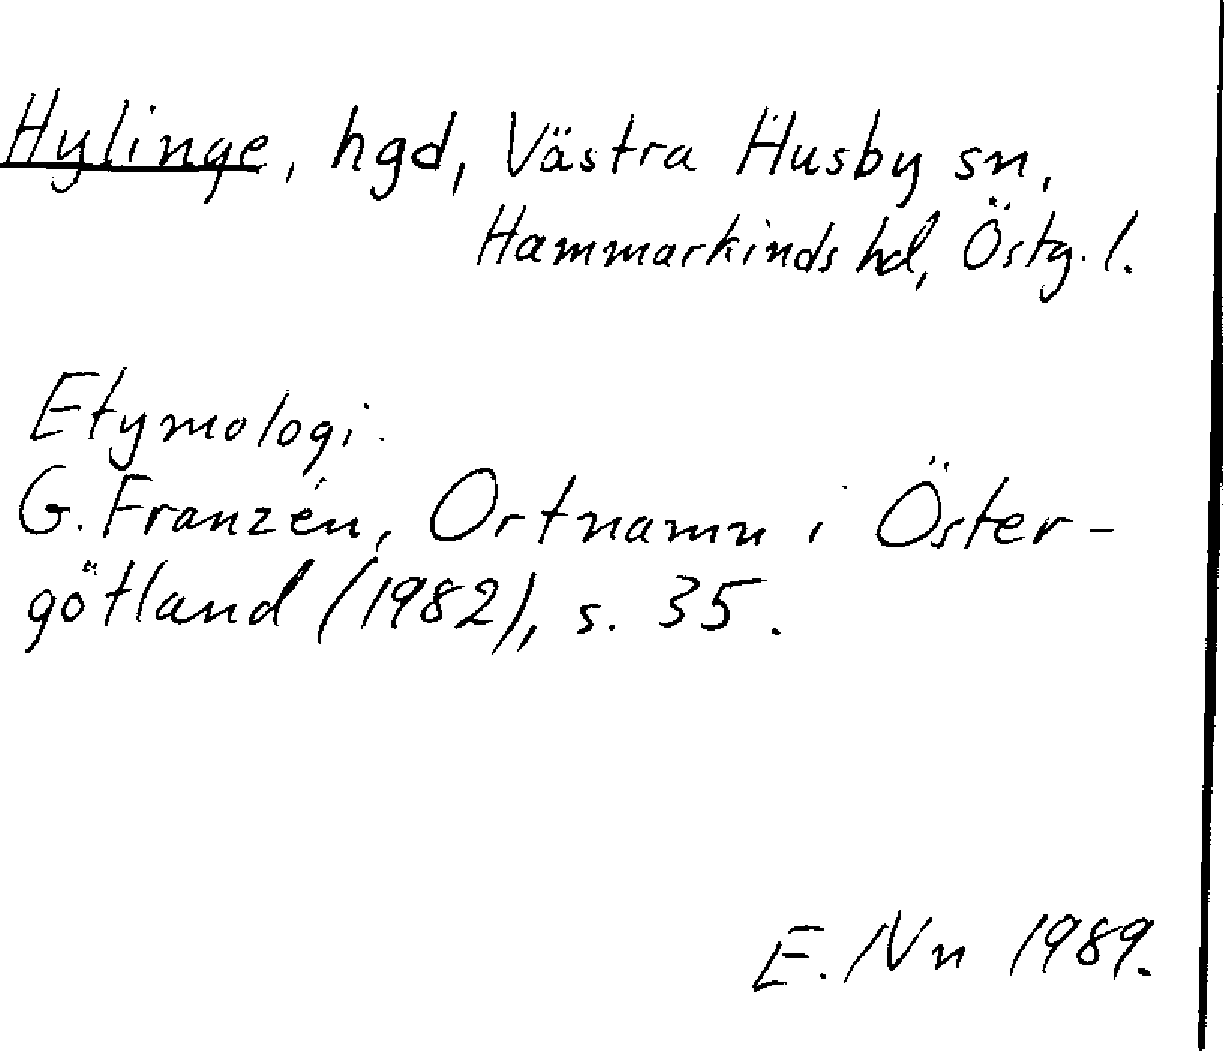 Hylinge, hgd, Västra Husby sn,
Hammarkinds hd, Östg. l.
Etymologi.
G. Franzén, Ortnamn i Öster-
götland (1982), s. 35.
E. Nn 1989.